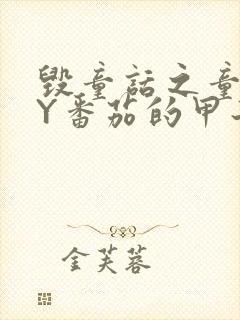 毁童话之童
Y番茄的甲
金芙蓉